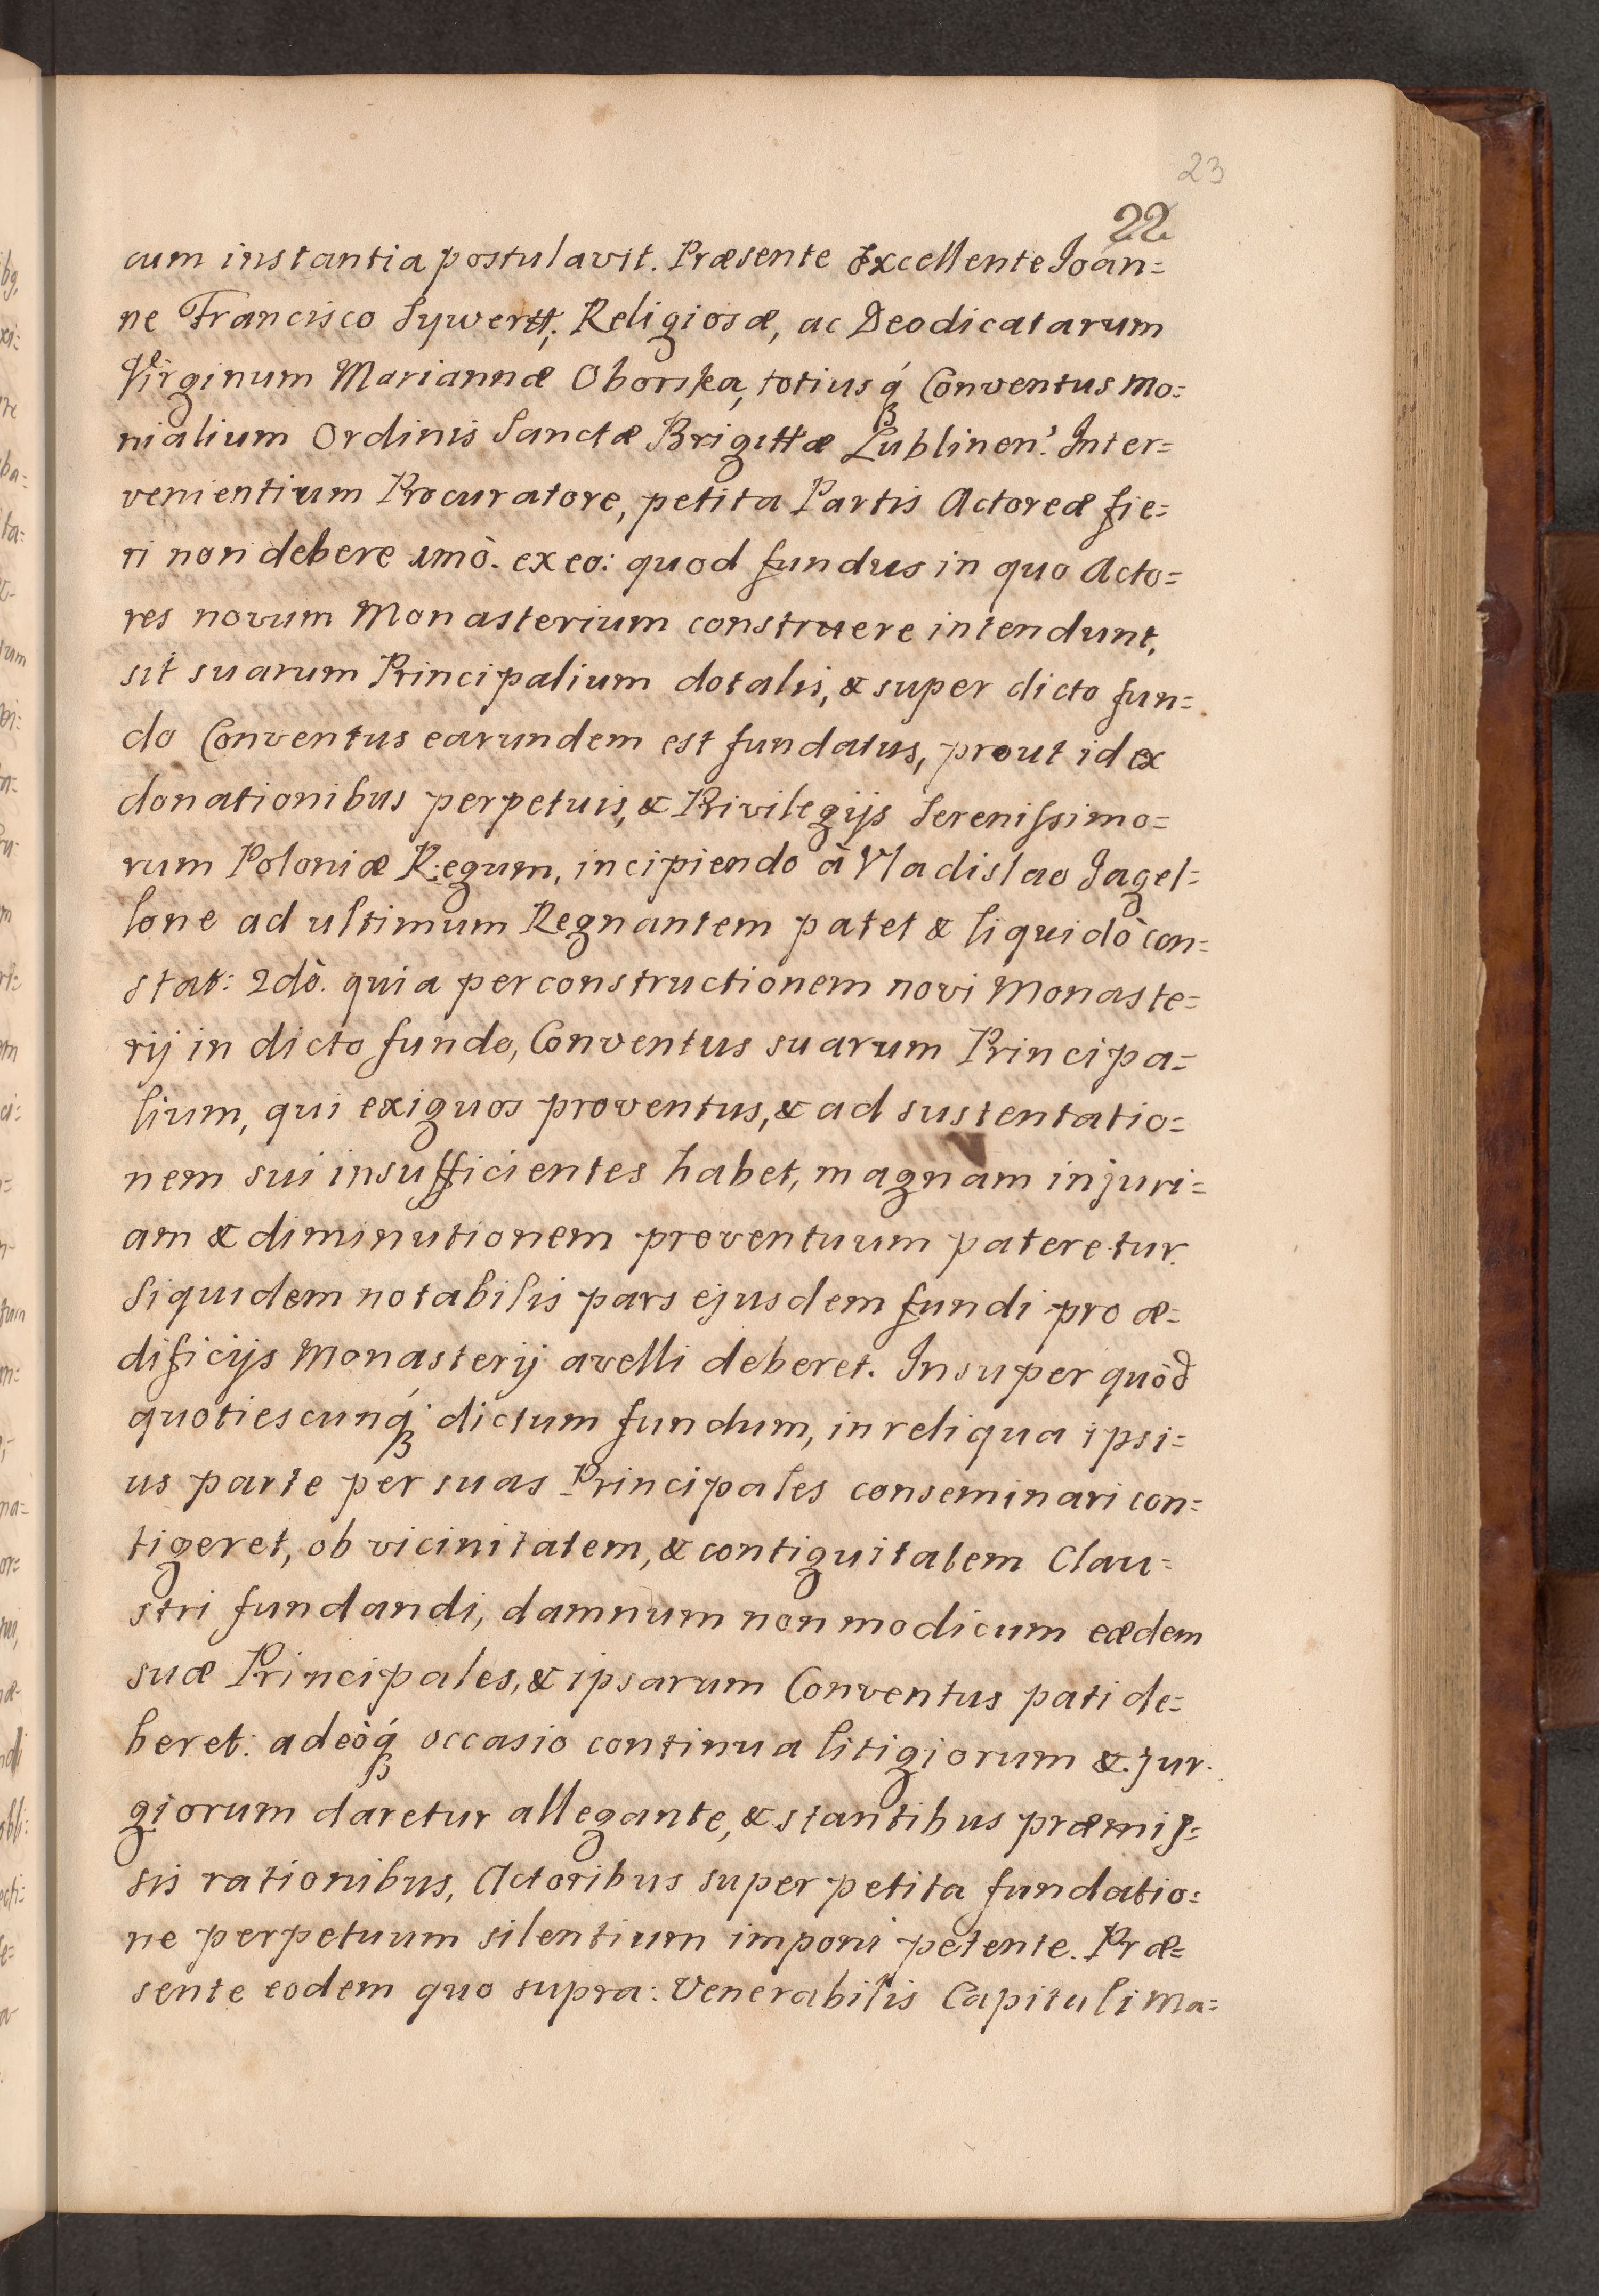 23
22
cum instantia postulavit. Præsente Excellente Joan=
ne Francisco Sywertt, Religiosæ, ac Deodicatarum
Virginum Mariannæ Oborska, totiusq́ꝫ Conventus Mo=
nialium Ordinis Sanctæ Brigittæ Lublinen': Inter=
venientium Procuratore, petita Partis Actoreæ fie=
ri non debere imò. ex eo: quod fundus in quo Acto=
res novum Monasterium construere intendunt,
sit suarum Principalium dotalis, & super dicto fun=
do Conventus earundem est fundatus, prout id ex
donationibus perpetuis, & Privilegijs Serenissimo=
rum Poloniæ Regum, incipiendo à Vladislao Jagel=
lone ad ultimum Regnantem patet & liquidò con=
stat: 2dò. quia per constructionem novi Monaste=
rij in dicto fundo, Conventus suarum Principa=
lium, qui exiguos proventus, & ad sustentatio=
nem sui insufficientes habet, magnam injuri=
am & diminutionem proventuum pateretur.
Siquidem notabilis pars ejusdem fundi pro æ=
dificijs Monasterij avelli deberet. Insuper quòd
quotiescunq́ꝫ dictum fundum, in reliqua ipsi=
us parte per suas Principales conseminari con=
tigeret, ob vicinitatem, & contiguitatem Clau=
stri fundandi, damnum non modicum eædem
suæ Principales, & ipsarum Conventus pati de=
beret: adeòq́ꝫ occasio continua litigiorum & jur.
giorum daretur allegante, & stantibus præmis=
sis rationibus, Actoribus super petita fundatio=
ne perpetuum silentium imponi petente. Præ=
sente eodem quo supra: Venerabilis Capituli Ma=